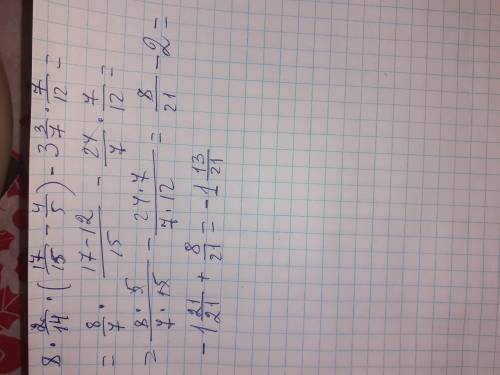 8 · 2/14 · (17/15 - 4/5) - 3 3/7 · 7/12 =
= 8/7 · 17-12/15 - 24/7 · 7/12 =
= 8·5/7·15 - 24·7/7·12 = 8/21 - 2 =
-1 21/21 + 8/21 = -1 13/21